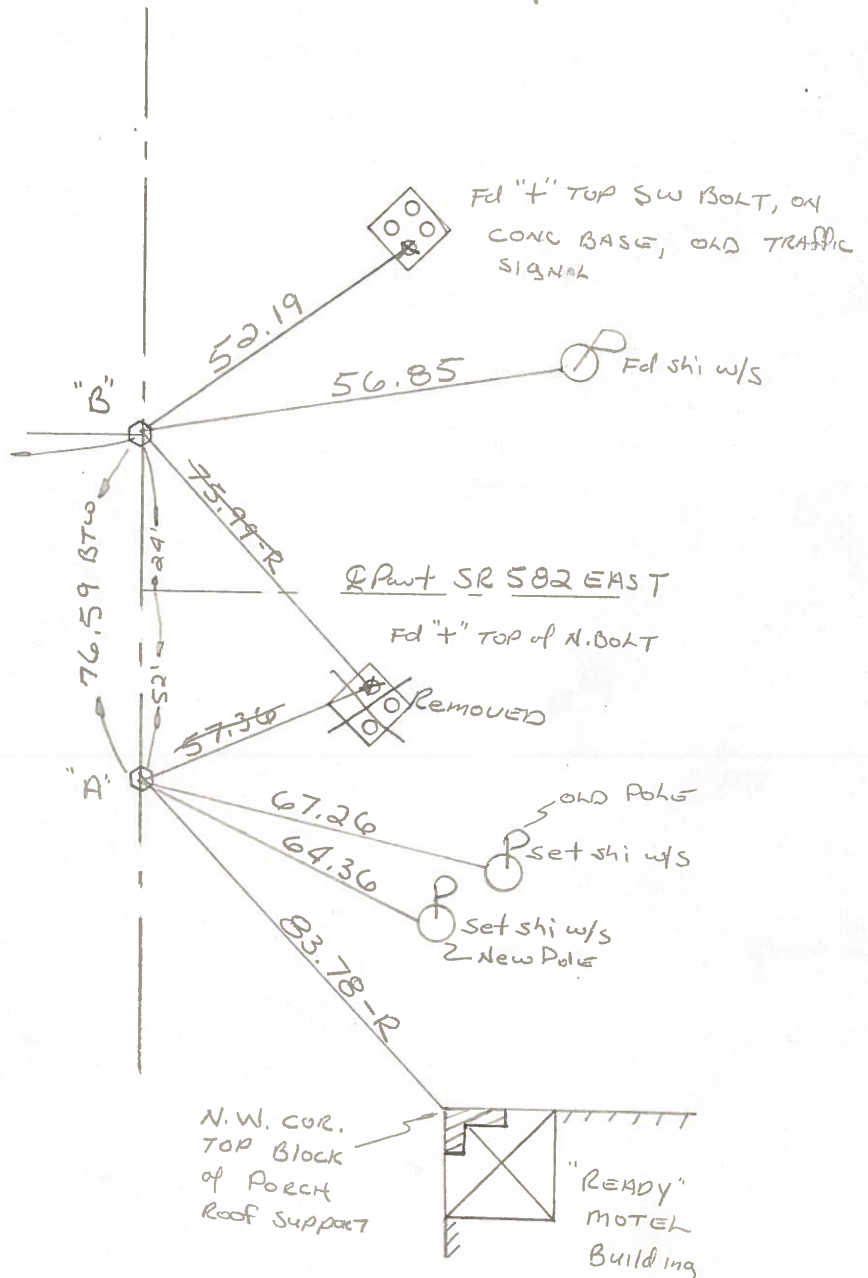 Fd "+" TOP SW BOLT, ON
CONC BASE, OLD TRAFFIC
SIGNAL
52.19
56.85
Fd shi w/s
"B"
75.99-R
76.59 BTW
24'
52'
℄ Pavt SR 582 EAST
Fd "+" TOP of N. BOLT
Removed
57.36
"A"
67.26
OLD POLE
set shi w/s
64.36
set shi w/s
New Pole
83.78-R
N.W. COR.
TOP Block
of PORCH
Roof Support
"READY"
MOTEL
Building